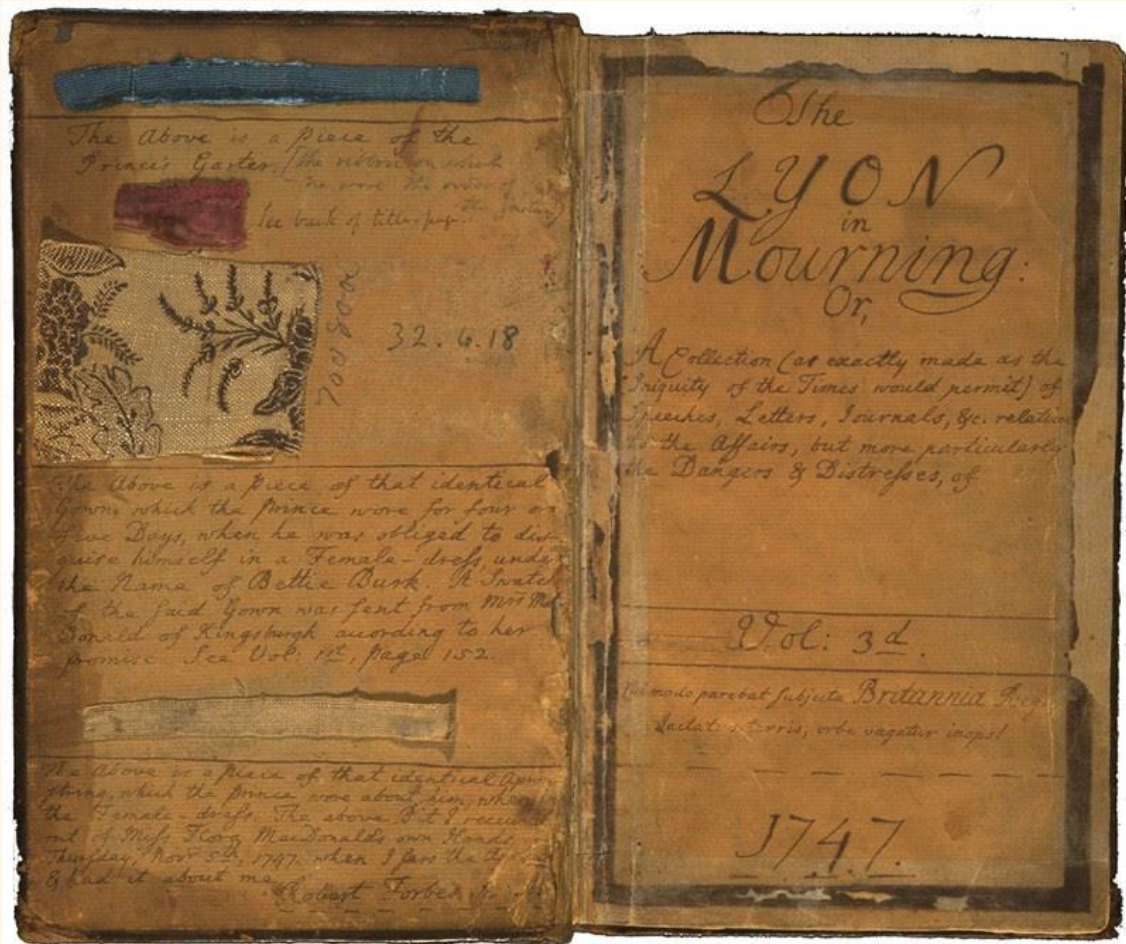 The Above is a piece of the
Prince's Garter. [the ribbon on which
he wore the order of
the Garter]
See back of title-page.
32.6.18
The Above is a piece of that identical
Gown, which the Prince wore for four or
five Days, when he was obliged to dis-
guise himself in a Female-dress, under
the Name of Bettie Burk. A Swatch
of the said Gown was sent from Mrs Mac
Donald of Kingsburgh according to her
promise. See Vol: 1st, page 152.
The Above is a piece of that identical Apron
string, which the Prince wore about him, when
the Female-dress. The above Bit I receiv
out of Miss Flora MacDonald's own Hands
Thursday, Novr 5th, 1747, when I saw the
& had it about me
Robert Forbes
The
LYON
in
Mourning:
Or,
A Collection (as exactly made as the
Iniquity of the Times would permit) of
Speeches, Letters, Journals, &c. relative
to the Affairs, but more particularly
the Dangers & Distresses, of
Vol: 3d.
modo parebat subjecta Britannia Regi
Jactatus terris, orbe vagatur inops!
1747.